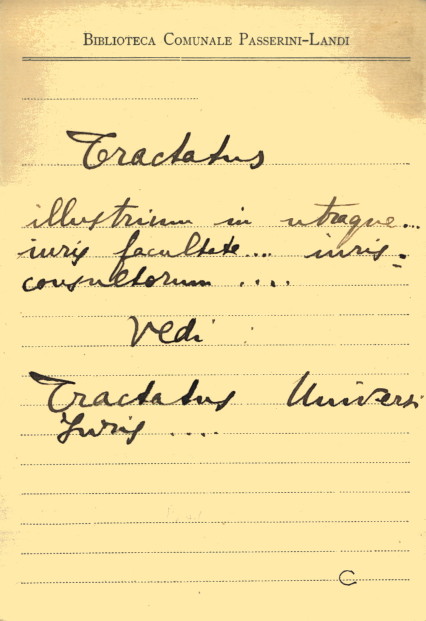 BIBLIOTECA COMUNALE PASSERINI-LANDI
Tractatus
illustrium in utraque...
iuris facultate... iuris=
consultorum ....
Vedi :
Tractatus Universi
Juris ....
C